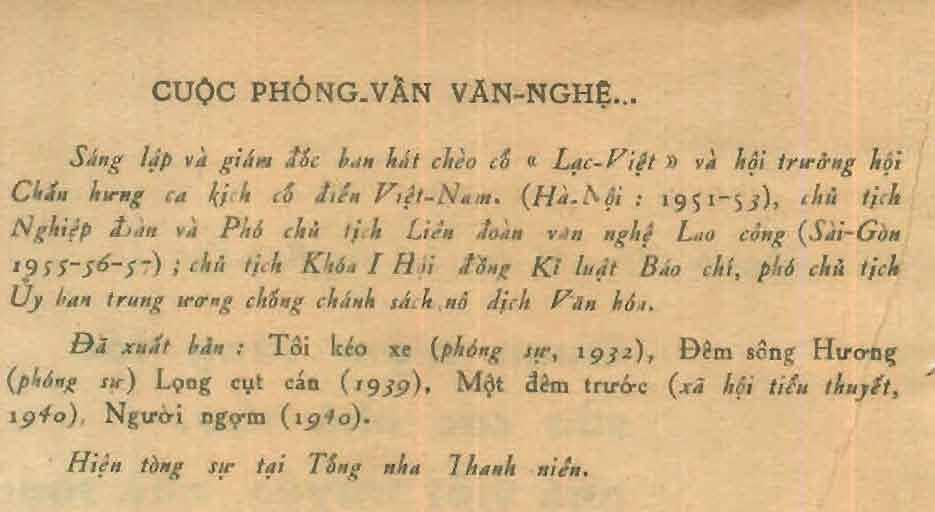 CUỘC PHỎNG-VẤN VĂN-NGHỆ...
Sáng lập và giám đốc ban hát chèo cổ « Lạc-Việt » và hội trưởng hội
Chấn hưng ca kịch cổ điển Việt-Nam. (Hà-Nội : 1951-53), chủ tịch
Nghiệp đoàn và Phó chủ tịch Liên đoàn văn nghệ Lao công (Sài-Gòn
1955-56-57) ; chủ tịch Khóa I Hội đồng Kỉ luật Báo chí, phó chủ tịch
Ủy ban trung ương chống chánh sách nô dịch Văn hóa.
Đã xuất bản : Tôi kéo xe (phóng sự, 1932), Đêm sông Hương
(phóng sự) Lọng cụt cán (1939), Một đêm trước (xã hội tiểu thuyết,
1940), Người ngợm (1940).
Hiện tòng sự tại Tổng nha Thanh niên.